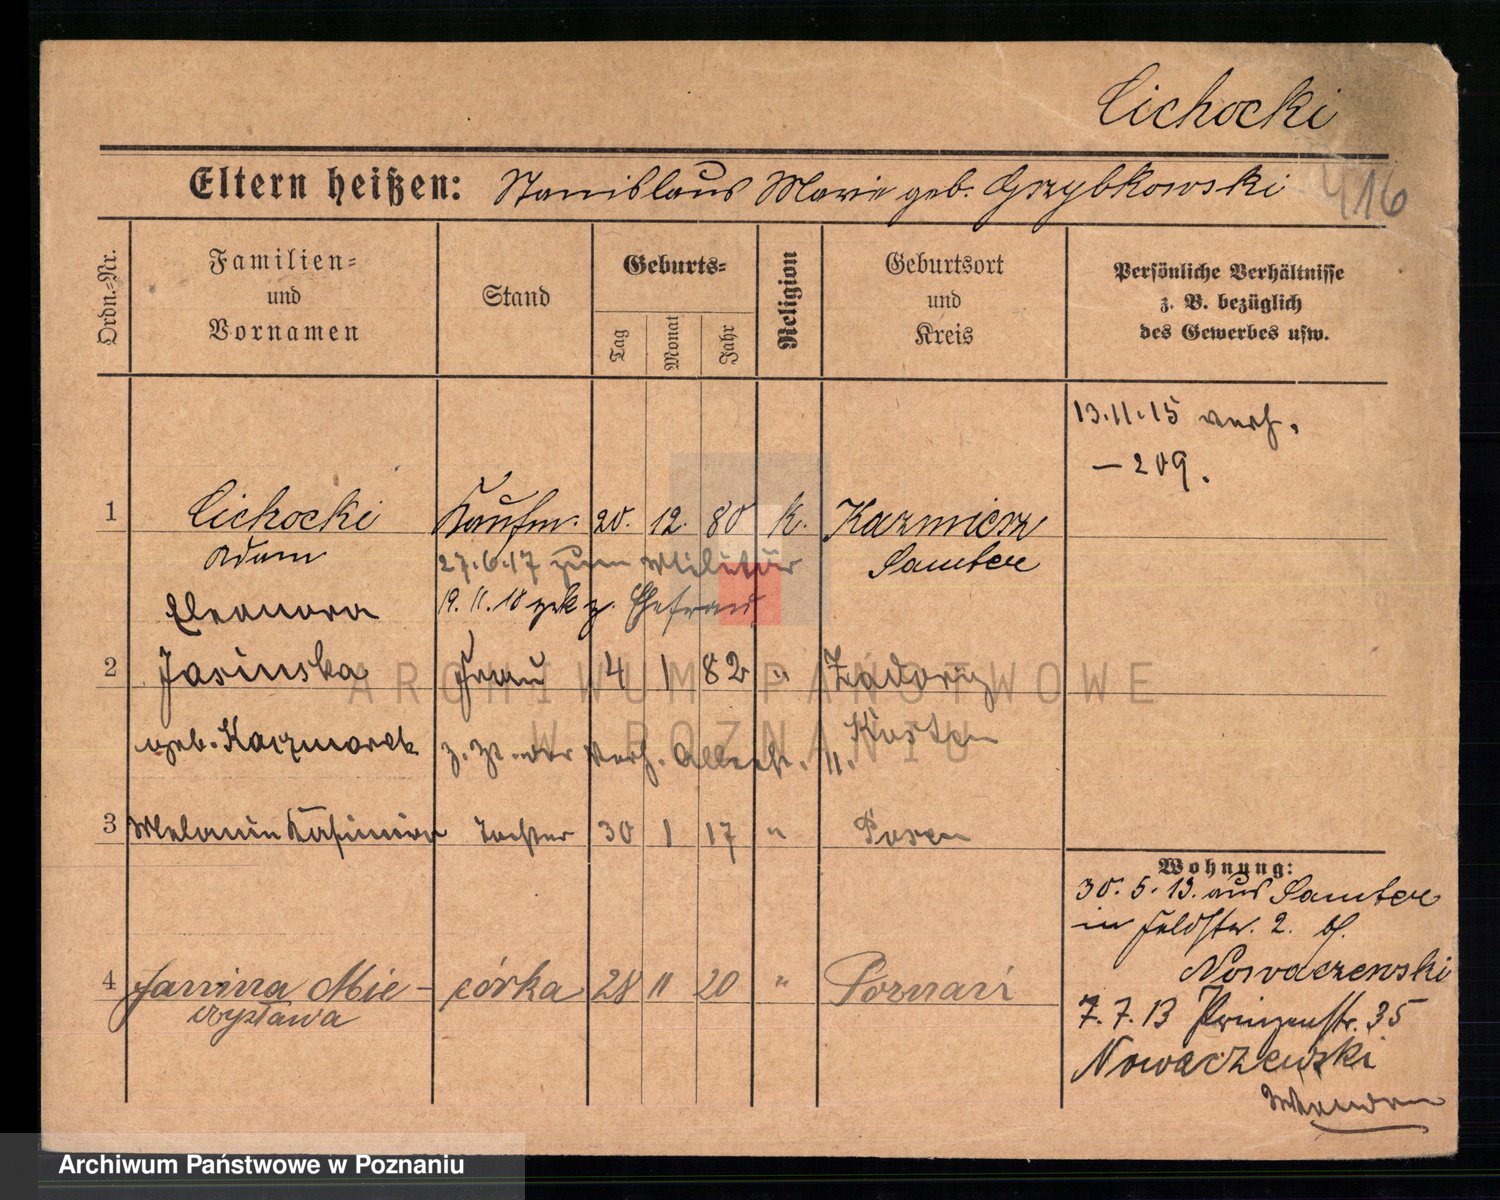 Cichocki
Eltern heißen: Stanislaus Marie geb. Grzybkowski
416
Ordn.-Nr.
Familien=
und
Vornamen
Stand
Geburts=
Tag
Monat
Jahr
Religion
Geburtsort
und
Kreis
Persönliche Verhältnisse
z. B. bezüglich
des Gewerbes usw.
13.11.15 verh.
– 209.
1 Cichocki Kaufm. 20. 12. 80 k. Kazmierz
Adam 27.6.17 zum Militär Samter
Eleonora 19. 11. 18 zrk z. Ehefrau
2 Jasinska Frau 4 1 82 " Zadory
geb. Kaczmarek z. Zt. der Verh. Kosten
3 Melanie Kasimira Tochter 30 1 17 " Posen
Wohnung:
30. 5. 13. aus Samter
in Feldstr. 2. b/.
Nowaczewski
4 Janina Mie- córka 28 11 20 " Poznań
czysława
7. 7. 13 Prinzenstr. 35
Nowaczewski
ARCHIWUM PAŃSTWOWE
W POZNANIU
Archiwum Państwowe w Poznaniu